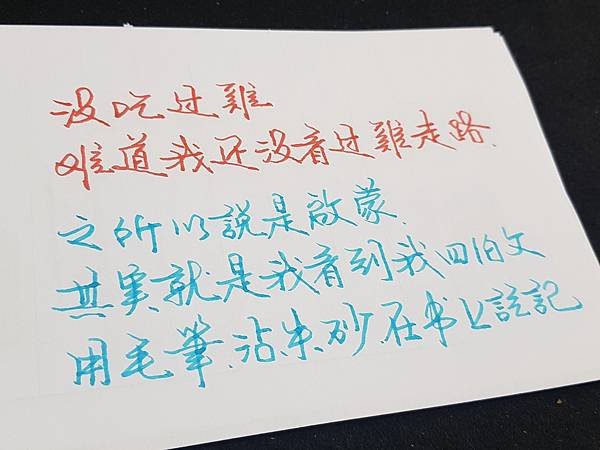 没吃过雞
难道我还没看过雞走路.
之所以說是啟蒙.
其实就是我看到我四伯父
用毛筆.沾朱砂.在书上註記